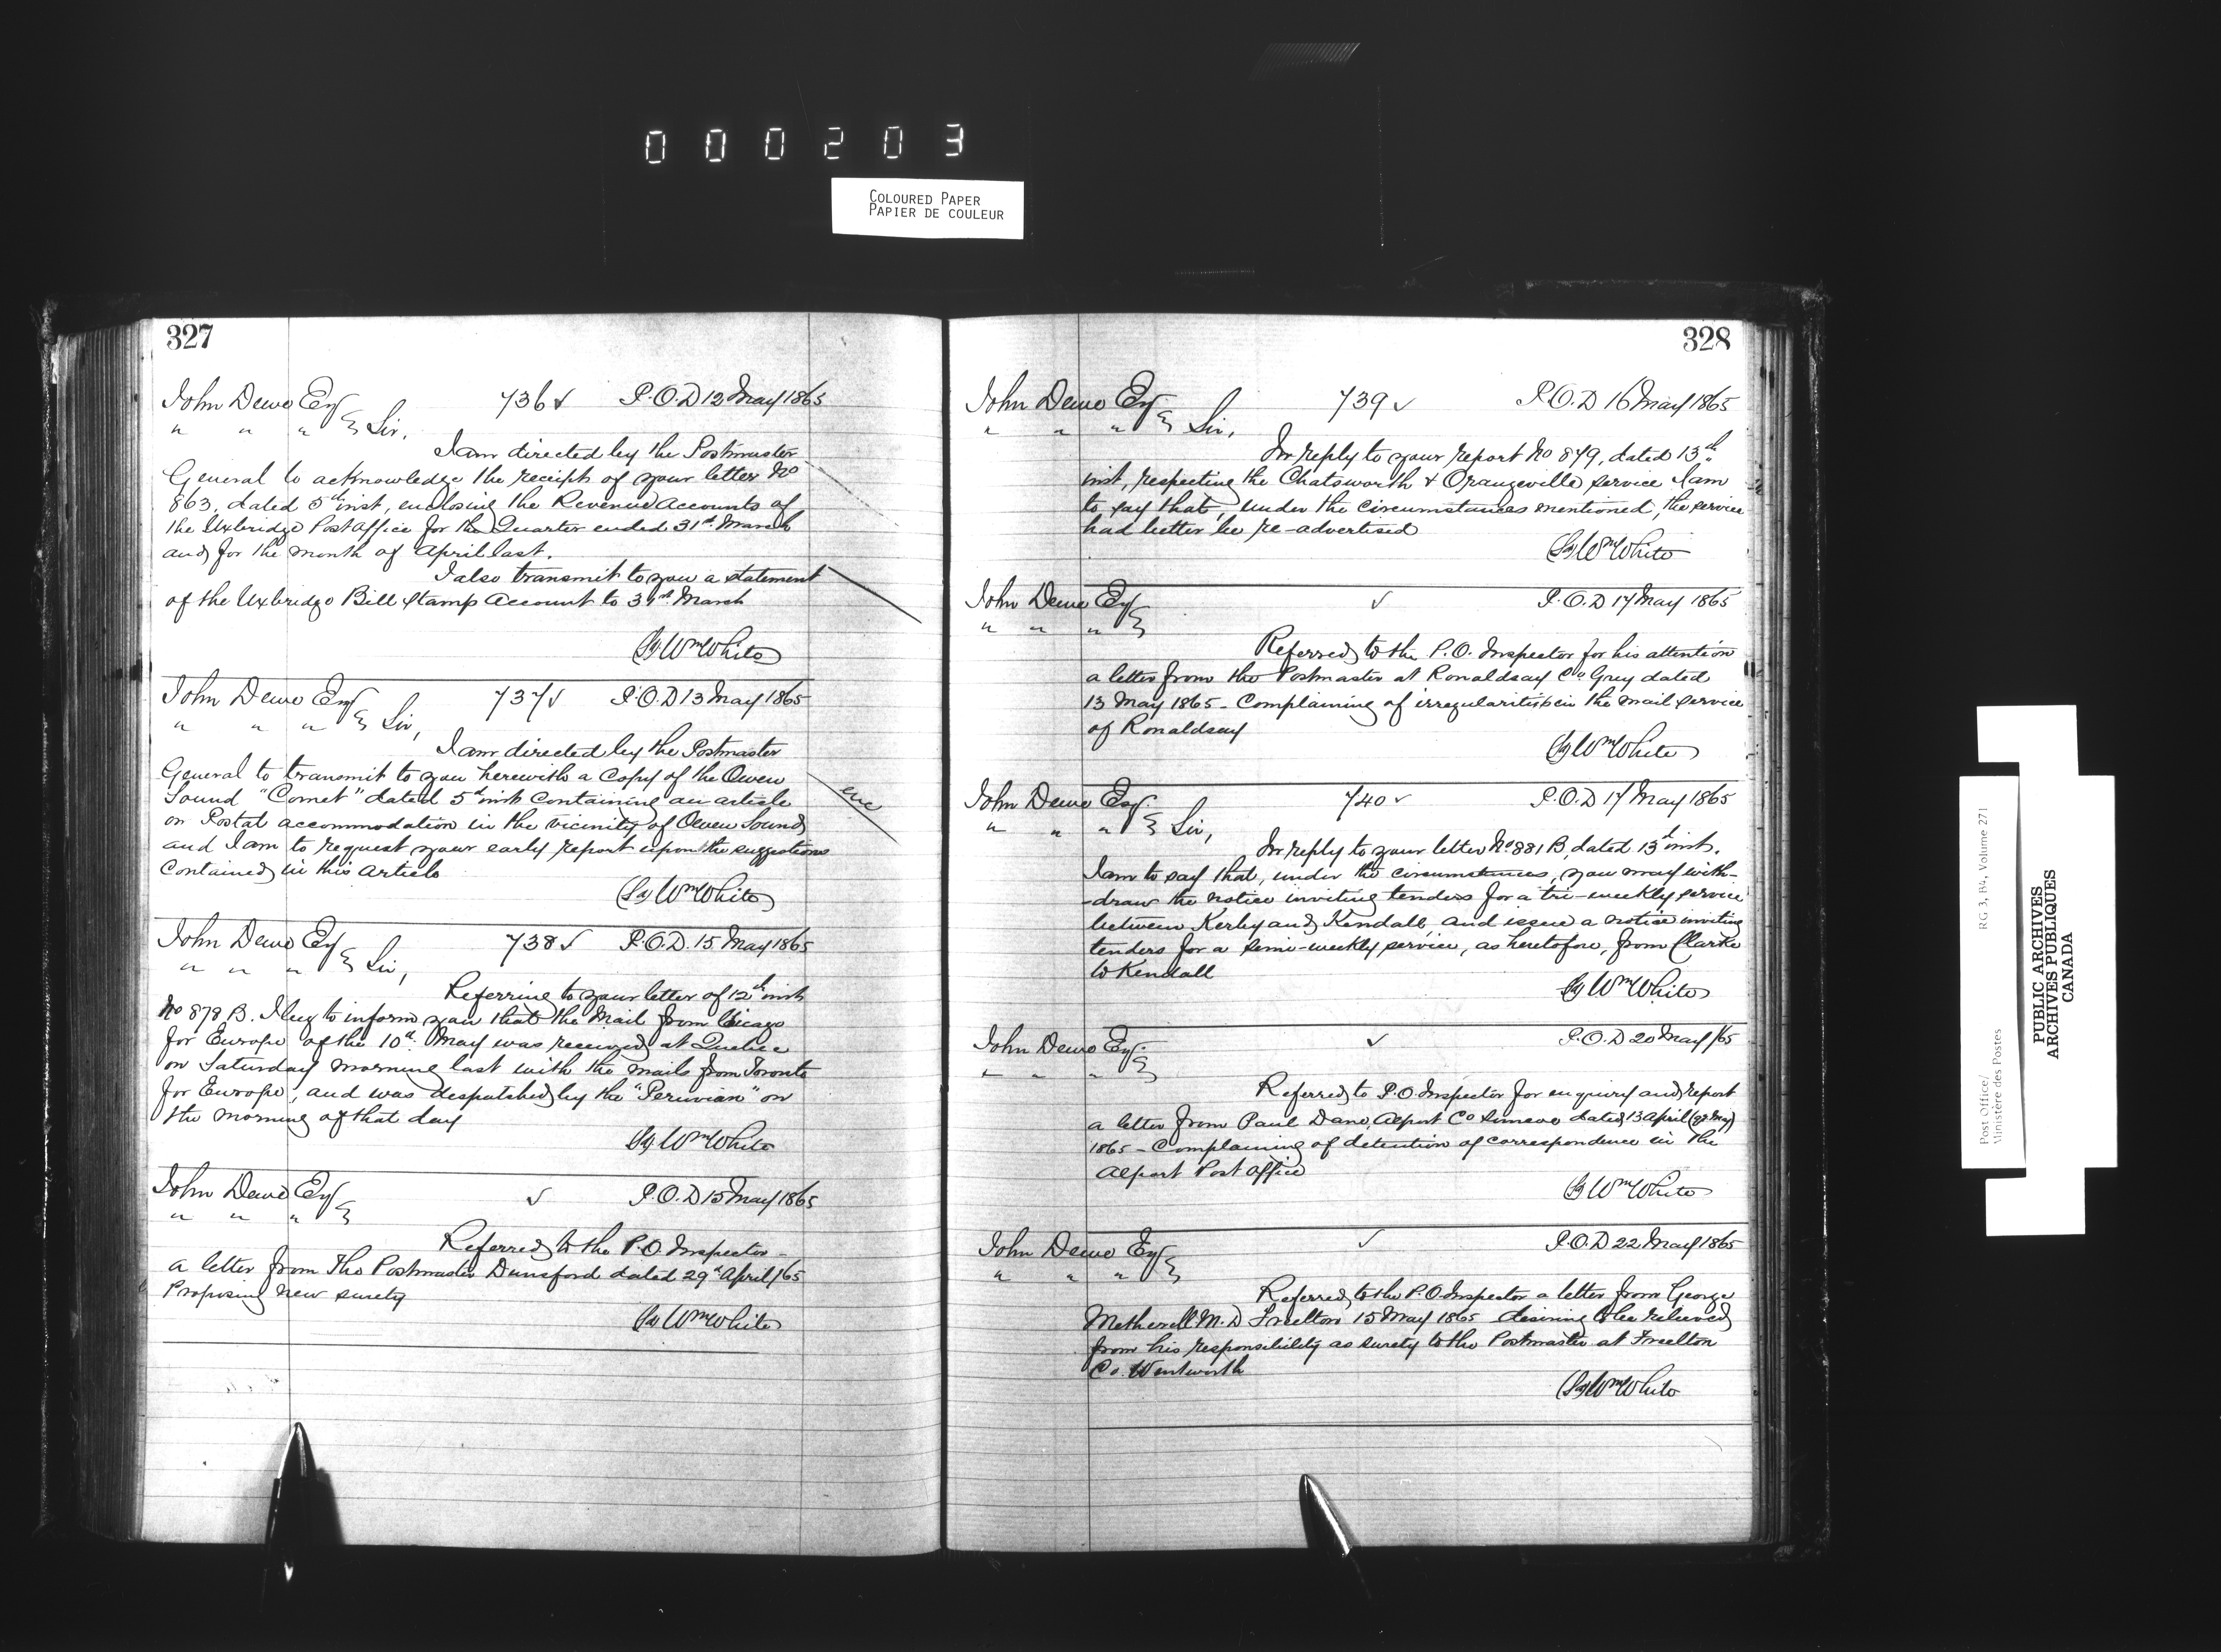 000203
COLOURED PAPER
PAPIER DE COULEUR
327
John Dewe Esq 736 ✓ P.O.D 12 May 1865
" " " } Sir,
I am directed by the Postmaster
General to acknowledge the receipt of your letter No
863, dated 5th inst, enclosing the Revenue Accounts of
the Uxbridge Post Office for the Quarter ended 31st March
and for the month of April last.
I also transmit to you a statement
of the Uxbridge Bill Stamp Account to 31st March
(Sg) Wm White
John Dewe Esq 737 ✓ P.O.D 13 May 1865
" " " } Sir,
I am directed by the Postmaster
General to transmit to you herewith a Copy of the Owen
Sound "Comet" dated 5th inst containing an article
enc
on Postal accommodation in the vicinity of Owen Sound
and I am to request your early report upon the suggestions
contained in this article
(Sg) Wm White
John Dewe Esq 738 ✓ P.O.D. 15 May 1865
" " " } Sir,
Referring to your letter of 12th inst
No 878 B. I beg to inform you that the Mail from Chicago
for Europe of the 10th May was received at Quebec
on Saturday morning last with the mails from Toronto
for Europe, and was despatched by the "Peruvian" on
the morning of that day
(Sg) Wm White
John Dewe Esq ✓ P.O.D 15 May 1865
" " " }
Referred to the P.O. Inspector -
a letter from the Postmaster Dunsford dated 29th April/65
Proposing new surety
(Sg) Wm White
328
John Dewe Esq 739 ✓ P.O.D 16 May 1865
" " " } Sir,
In reply to your report No 879, dated 13th
inst, respecting the Chatsworth & Orangeville service I am
to say that, under the circumstances mentioned, the service
had better be re-advertised
(Sg) Wm White
John Dewe Esq ✓ P.O.D 17 May 1865
" " " }
Referred to the P.O. Inspector for his attention
a letter from the Postmaster at Ronaldsay Co Grey dated
13 May 1865 - Complaining of irregularities in the mail service
of Ronaldsay
(Sg) Wm White
John Dewe Esq. 740 ✓ P.O.D 17 May 1865
" " " } Sir,
In reply to your letter No 881 B, dated 13th inst.
I am to say that, under the circumstances, you may with-
-draw the notice inviting tenders for a tri-weekly service
between Kerby and Kendall, and issue a notice inviting
tenders for a semi-weekly service, as heretofore, from Clarke
to Kendall
(Sg) Wm White
John Dewe Esq. ✓ P.O.D 20 May/65
" " " }
Referred to P.O. Inspector for enquiry and report
a letter from Paul Dane, Alport Co Simcoe dated 13 April
1865 - Complaining of detention of correspondence in the
Alport Post Office
(Sg) Wm White
John Dewe Esq ✓ P.O.D 22 May 1865
" " " }
Referred to the P.O. Inspector a letter from George
Metherell M.D Freelton 15 May 1865 desiring to be relieved
from his responsibility as surety to the Postmaster at Freelton
Co. Wentworth
(Sg) Wm White
Post Office/ RG 3, B4, Volume 271
Ministère des Postes
PUBLIC ARCHIVES
ARCHIVES PUBLIQUES
CANADA